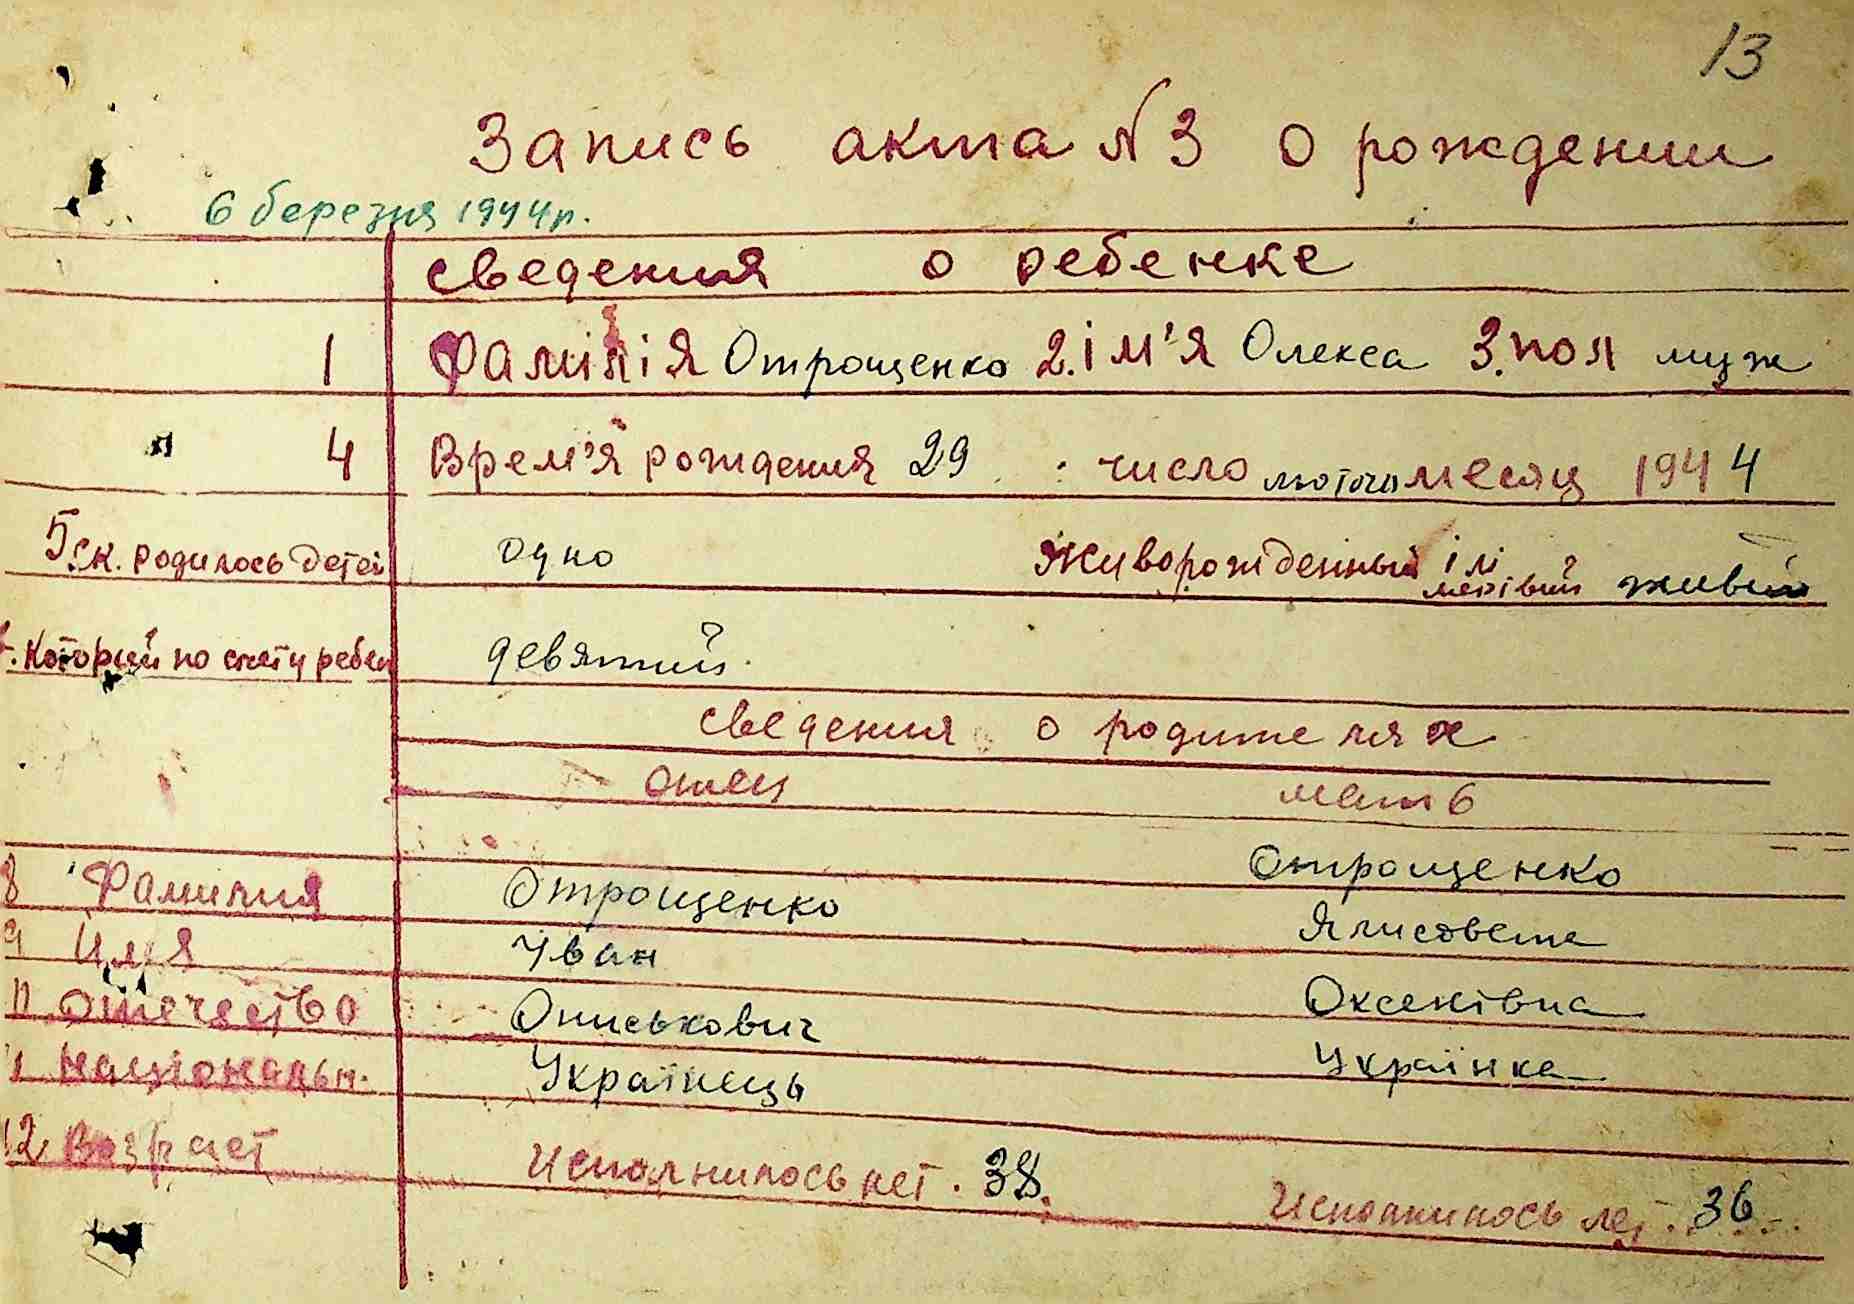 13
Запись акта №3 о рождении
6 березня 1944р.
сведения о ребенке
1 Фамилія Отрощенко 2. ім'я Олекса 3. пол муж
4 Врем'я рождения 29 число лютого месяц 1944
5. ск. родилось детей одно Живорожденный ілі мертвий живий
Которий по счету ребен девятий.
сведения о родителях
отец мать
8 Фамилия Отрощенко Отрощенко
9 Имя Іван Ялисовета
11 отечество Ониськович Оксентівна
11 національн. Українець Українка
12 Возраст Исполнилось лет. 38. Исполнилось лет. 36